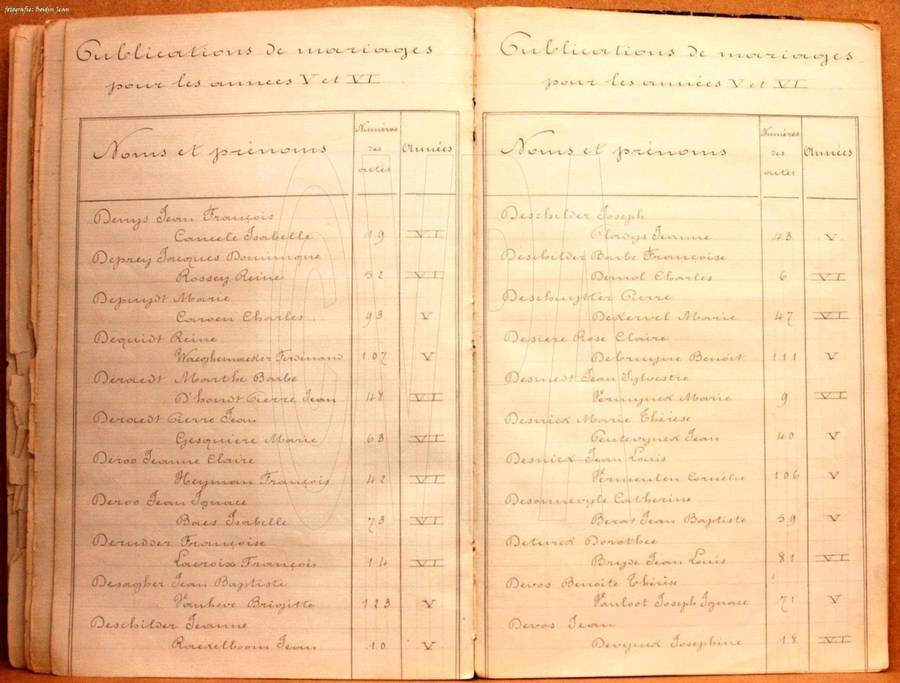 fotografie: Boidin Jean
Publications de mariages
pour les années V et VI
Noms et prénoms Numéros des actes Années
Denys Jean François
Caneele Isabelle 19 VI
Deprey Jacques Dominique
Rossey Reine 52 VI
Depuydt Marie
Caroen Charles 93 V
Dequidt Reine
Waeghemacker Ferdinand 107 V
Deraedt Marthe Barbe
D'hondt Pierre Jean 48 VI
Deraedt Pierre Jean
Gesquiere Marie 63 VI
Deroo Jeanne Claire
Heyman François 42 VI
Deroo Jean Ignace
Baes Isabelle 73 VI
Derudder Françoise
Lacroix François 14 VI
Desagher Jean Baptiste
Vanhove Brigitte 123 V
Deschilder Jeanne
Raekelboom Jean 10 V
Publications de mariages
pour les années V et VI
Noms et prénoms Numéros des actes Années
Deschilder Joseph
Cladys Jeanne 43 V
Deschilder Barbe Françoise
Demol Charles 6 VI
Deschuytter Pierre
Dekervel Marie 47 VI
Desiere Rose Claire
Debruyne Benoît 111 V
Desmedt Jean Sylvestre
Vermynck Marie 9 VI
Desnick Marie Thérèse
Jean 40 V
Desnick Jean Louis
Vermeulen Cornélie 106 V
Catherine
Berat Jean Baptiste 59 V
Deturck Dorothée
Bryde Jean Louis 81 VI
Devos Benoite Thérèse
Vanloot Joseph Ignace 71 V
Devos Jean
Devynck Josephine 18 VI